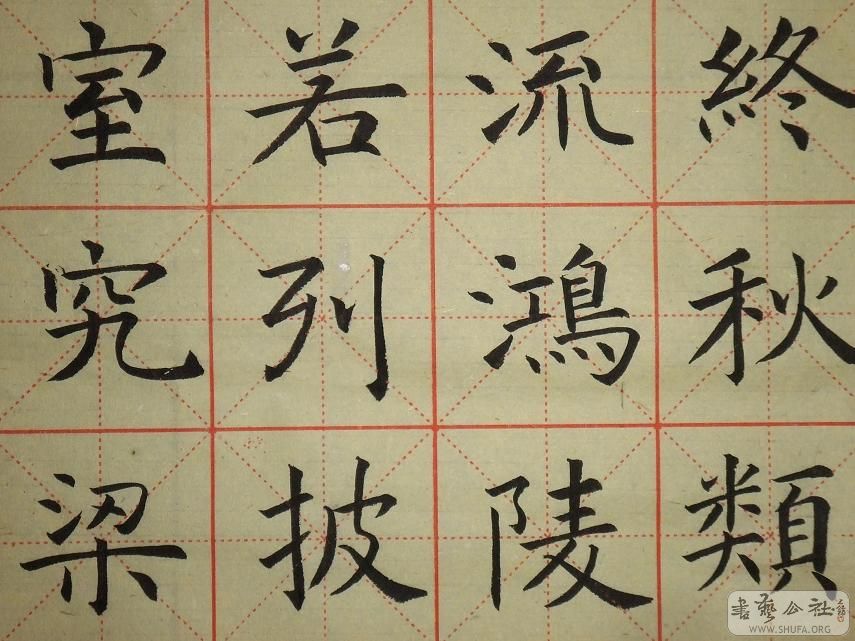 終秋類
流鴻陵
若列披
室究梁
書藝公社
WWW.SHUFA.ORG